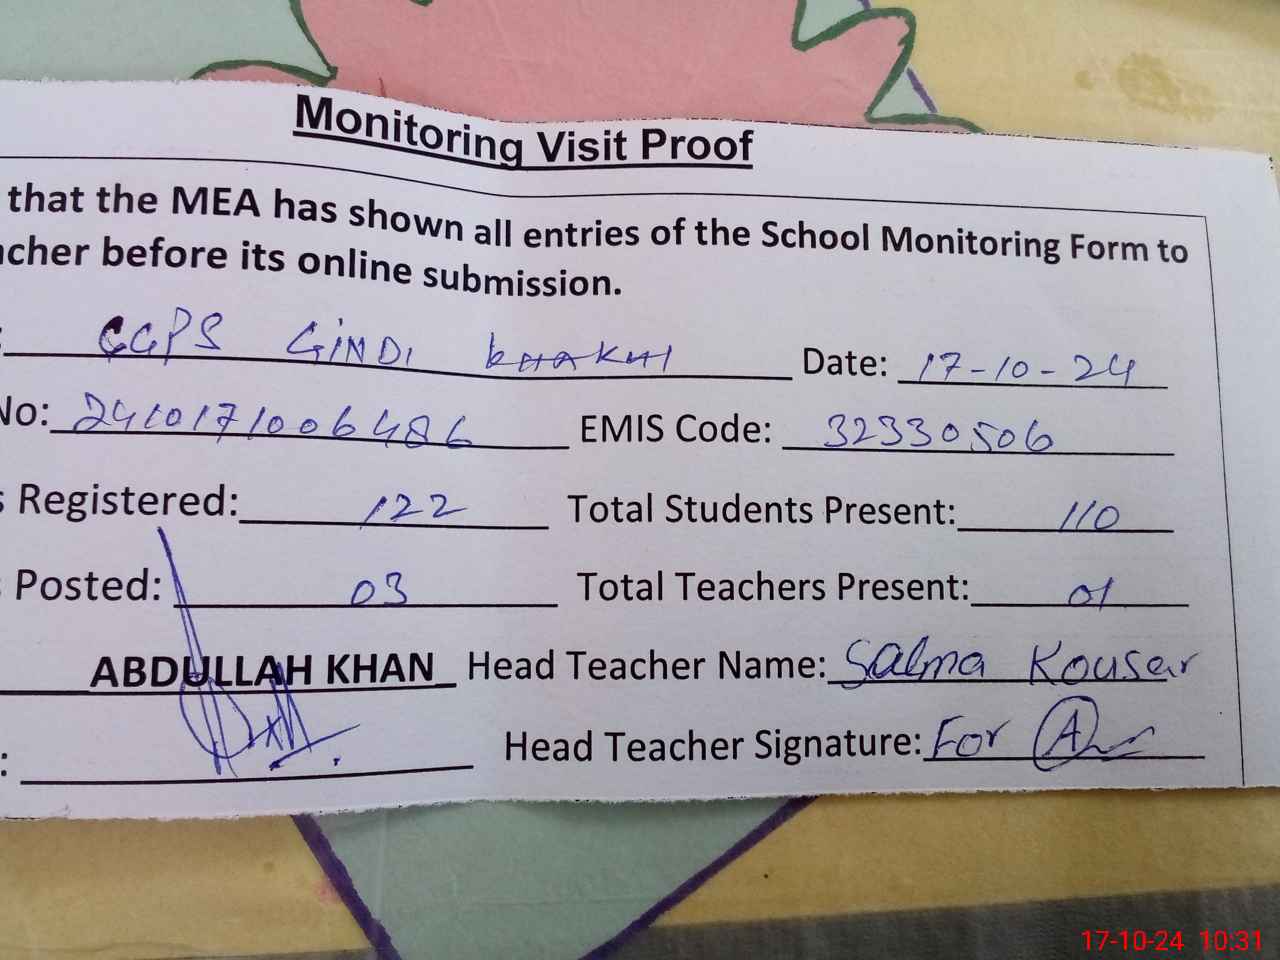 Monitoring Visit Proof
that the MEA has shown all entries of the School Monitoring Form to
acher before its online submission.
: GGPS GiNDi Date: 17-10-24
No: 2410171006486 EMIS Code: 32330506
s Registered: 122 Total Students Present: 110
s Posted: 03 Total Teachers Present: 01
ABDULLAH KHAN Head Teacher Name: Salma Kousar
: Head Teacher Signature: For A
17-10-24 10:31